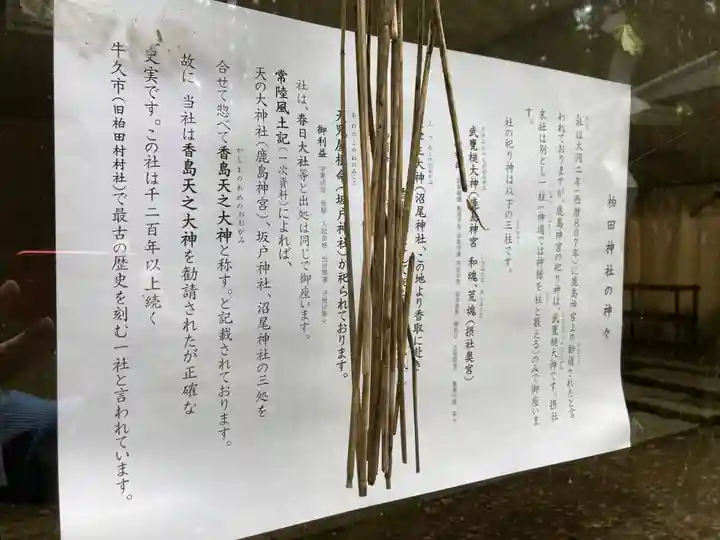 柏田神社の神々
社は大同二年(西暦807年)に鹿島神宮より勧請されたと言
われておりますが、鹿島神宮の祀り神は、武甕槌大神です。摂社
末社は別とし一柱(神道では神様を柱と数える)のみで御座いま
す。
社の祀り神は以下の三柱です。
武甕槌大神(鹿島神宮 和魂、荒魂(摂社奥宮)
大神(沼尾神社、この地より香取に赴き
あめのこやねのみこと
天児屋根命(坂戸神社)が祀られております。
御利益
社は、春日大社等と出処は同じで御座います。
常陸風土記(一次資料)によれば、
天の大神社(鹿島神宮)、坂戸神社、沼尾神社の三処を
合せて惣べて香島天之大神と称す。と記載されております。
かしまのあめのおおがみ
故に 当社は香島天之大神を勧請されたが正確な
史実です。この社は千二百年以上続く
牛久市(旧柏田村村社)で最古の歴史を刻む一社と言われています。